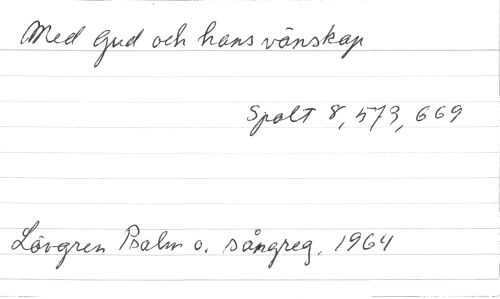 Med Gud och hans vänskap
Spalt 8, 573, 669
Lövgren Psalm o. sångreg. 1964